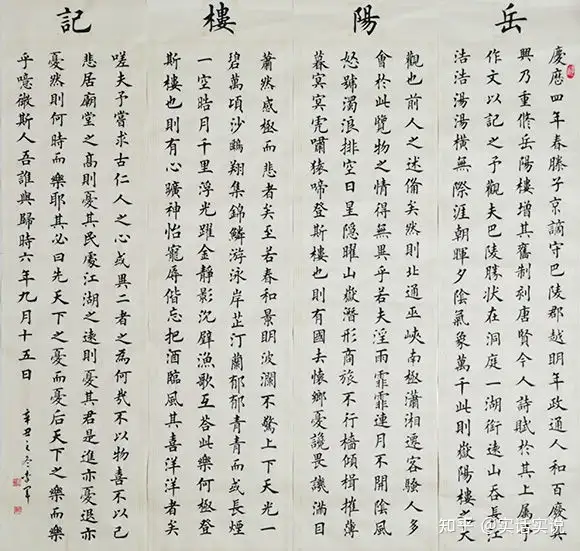 岳陽樓記
慶曆四年春滕子京謫守巴陵郡越明年政通人和百廢具
興乃重修岳陽樓增其舊制刻唐賢今人詩賦於其上屬予
作文以記之予觀夫巴陵勝狀在洞庭一湖銜遠山吞長江
浩浩湯湯橫無際涯朝暉夕陰氣象萬千此則嶽陽樓之大
觀也前人之述備矣然則北通巫峽南極瀟湘遷客騷人多
會於此覽物之情得無異乎若夫淫雨霏霏連月不開陰風
怒號濁浪排空日星隱曜山嶽潛形商旅不行檣傾楫摧薄
暮冥冥虎嘯猿啼登斯樓也則有國去懷鄉憂讒畏譏滿目
蕭然感極而悲者矣至若春和景明波瀾不驚上下天光一
碧萬頃沙鷗翔集錦鱗游泳岸芷汀蘭郁郁青青而或長煙
一空皓月千里浮光躍金靜影沉璧漁歌互荅此樂何極登
斯樓也則有心曠神怡寵辱偕忘把酒臨風其喜洋洋者矣
嗟夫予嘗求古仁人之心或異二者之為何哉不以物喜不以己
悲居廟堂之高則憂其民處江湖之遠則憂其君是進亦憂退亦
憂然則何時而樂耶其必曰先天下之憂而憂后天下之樂而樂
乎噫微斯人吾誰與歸時六年九月十五日
辛丑之冬
知乎 @实话实说